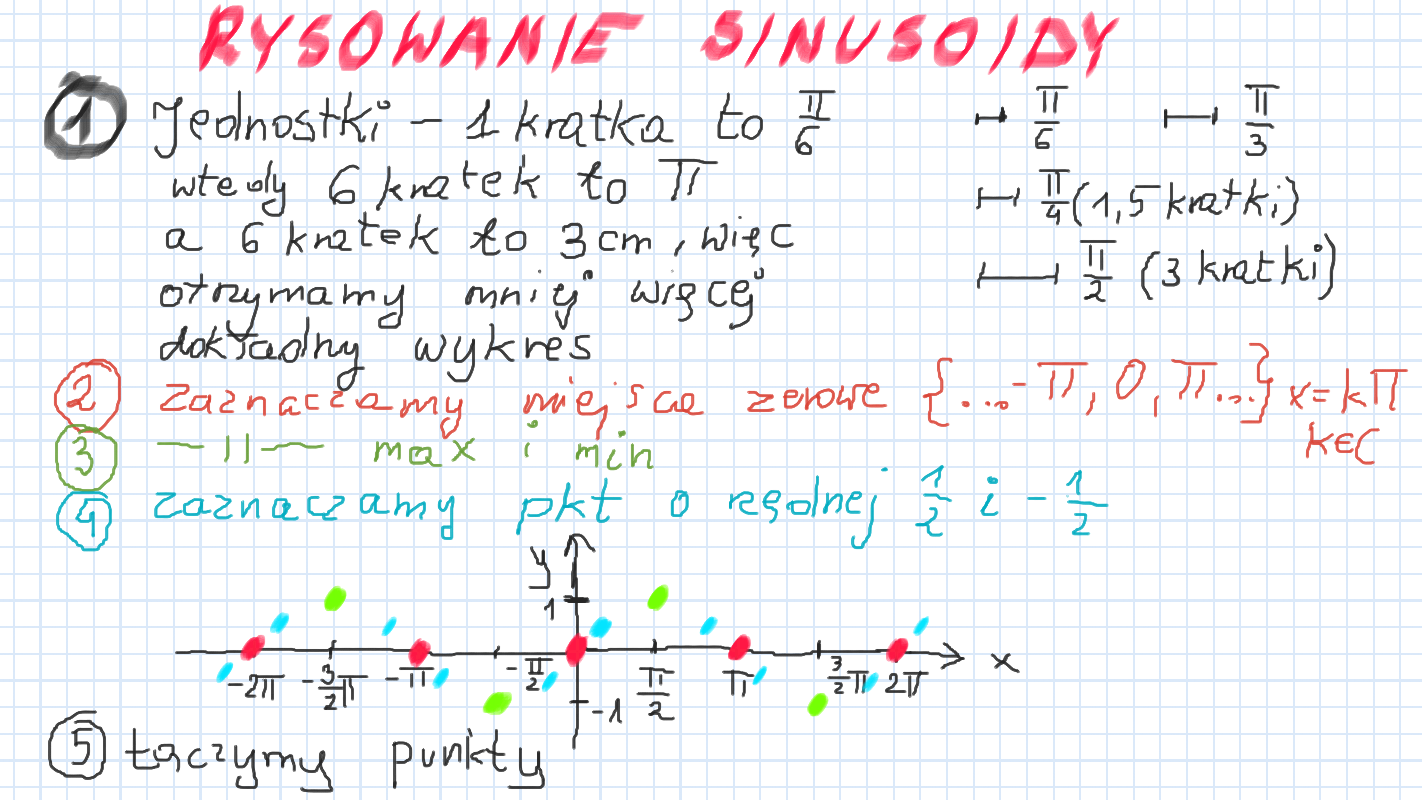 RYSOWANIE SINUSOIDY
1 Jednostki - 1 kratka to π/6
wtedy 6 kratek to π
a 6 kratek to 3 cm, więc
otrzymamy mniej więcej
dokładny wykres
π/6 π/3
π/4 (1,5 kratki)
π/2 (3 kratki)
2 zaznaczamy miejsca zerowe {... -π, 0, π...} x=kπ
k∈C
3 —||— max i min
4 zaznaczamy pkt o rzędnej 1/2 i -1/2
y
1
-2π -3/2π -π -π/2 π/2 π 3/2π 2π x
-1
5 łączymy punkty